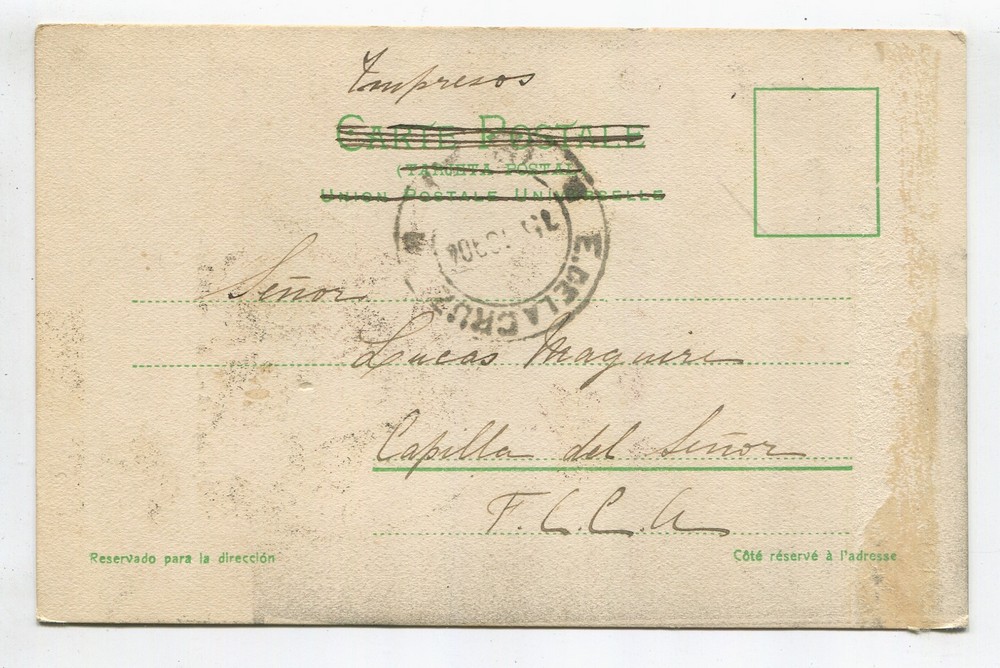 Impresos
CARTE POSTALE
(TARJETA POSTAL)
UNION POSTALE UNIVERSELLE
E. DE LA CRUZ
Señor
Lucas Maguire
Capilla del Señor
F. C. C. A
Reservado para la dirección
Côté réservé à l'adresse